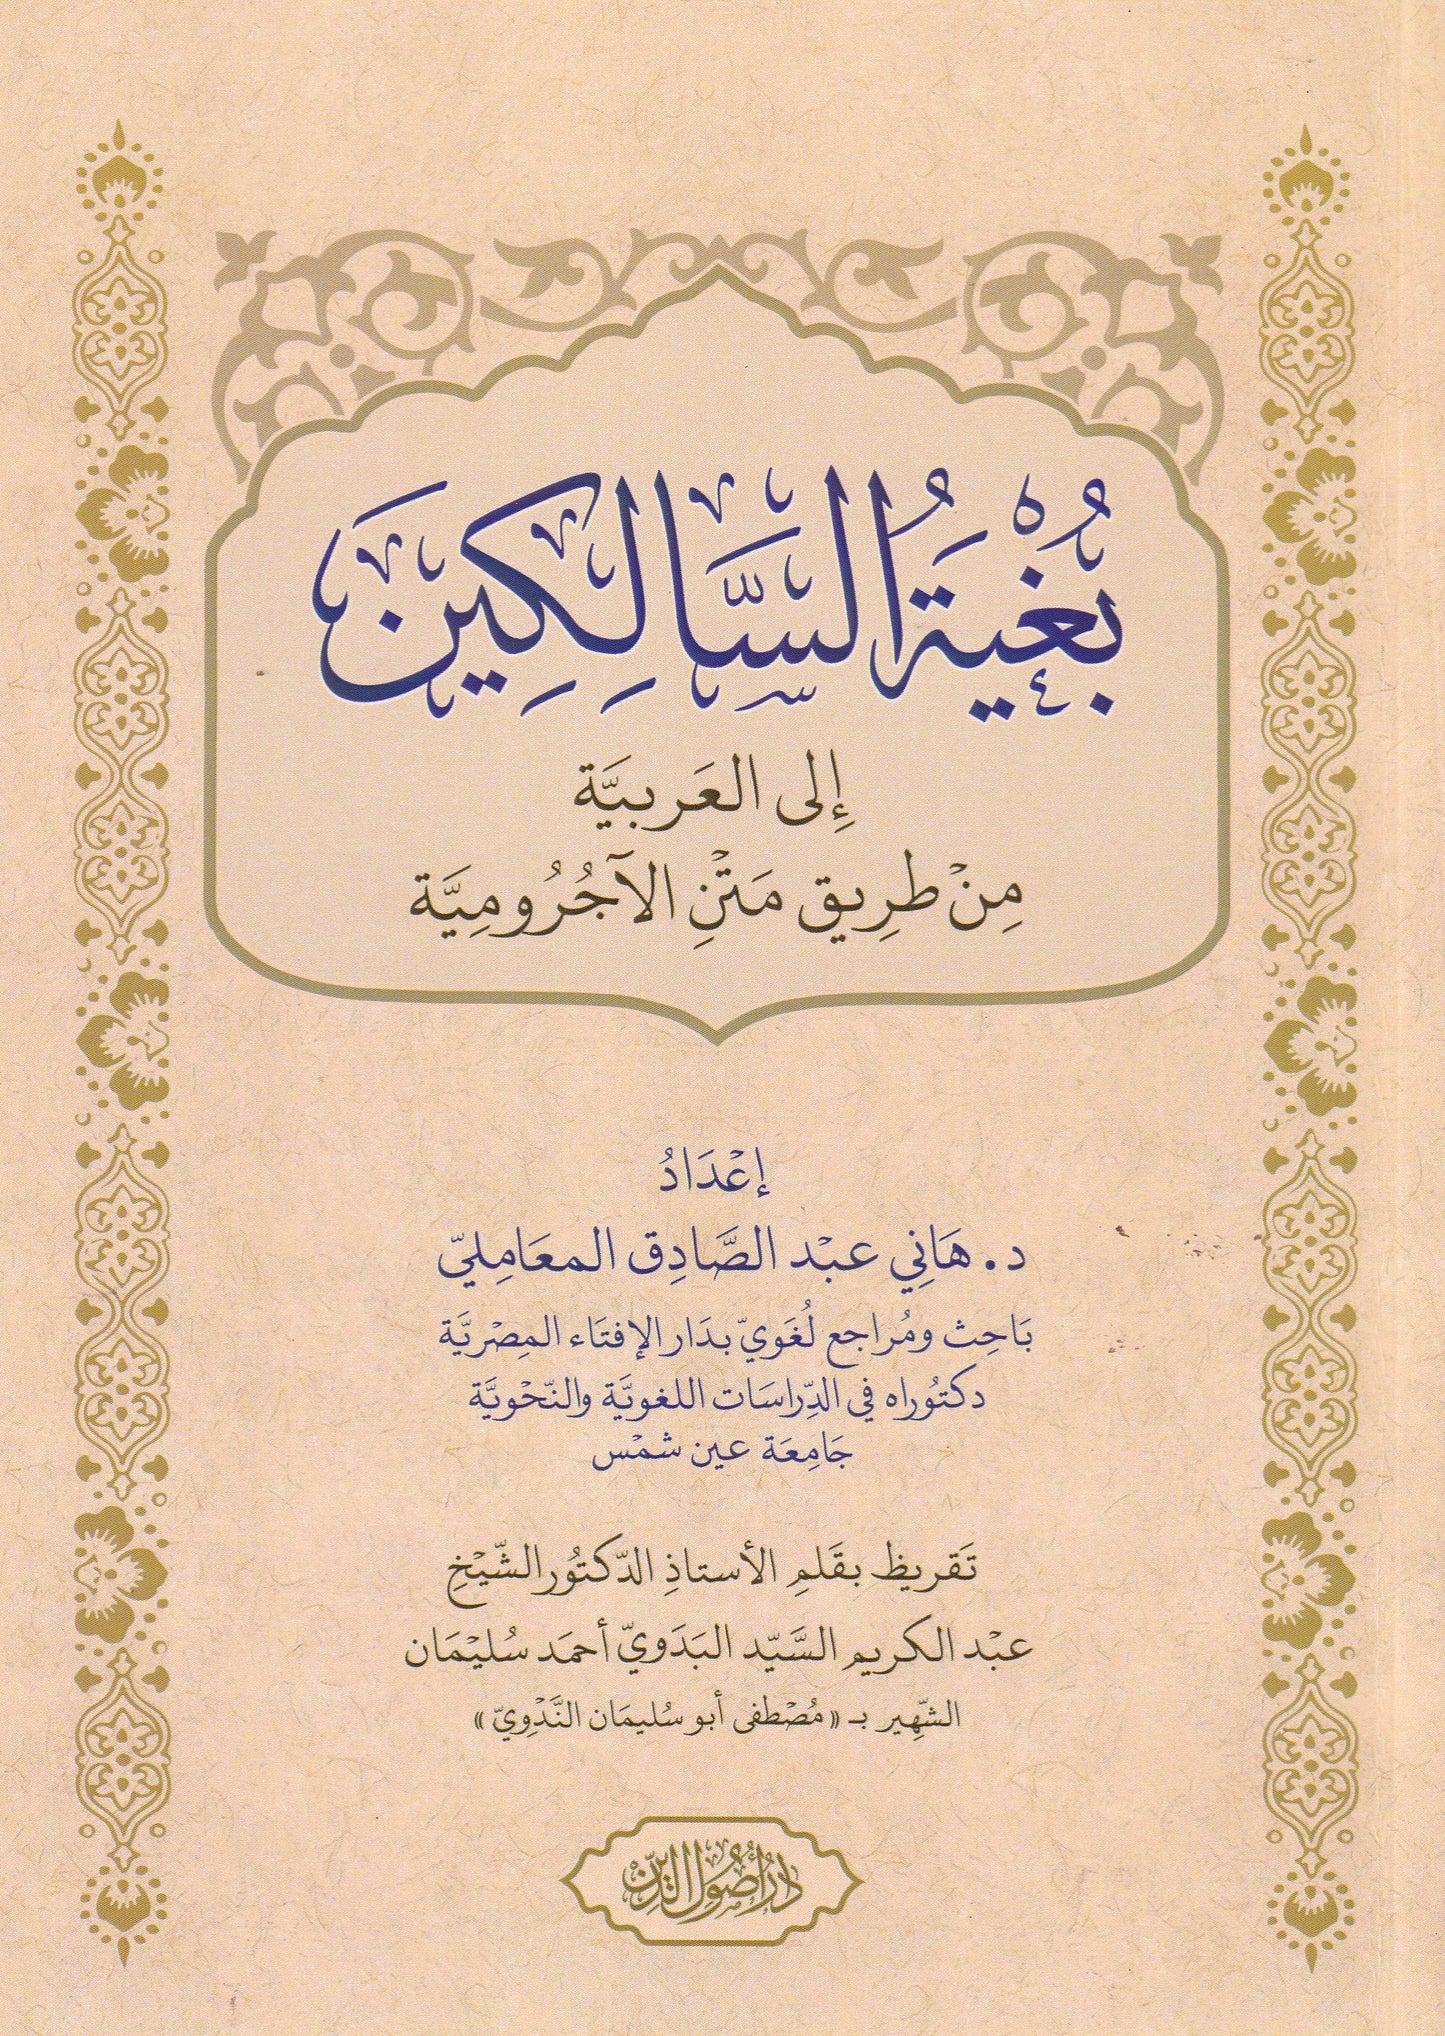 بُغْيَةُ السَّالِكِينَ
إِلى العَربيَّة
مِنْ طَرِيق مَتْنِ الآجُرُومِيَّة
إعْدَادُ
د. هَانِي عبْد الصَّادِق المعَامِليّ
بَاحِث ومُراجع لُغَويّ بدَار الإفتَاء المِصْريَّة
دكتُوراه في الدِّراسَات اللغويَّة والنّحْويَّة
جَامِعَة عين شمْس
تَقريظ بقَلمِ الأستاذِ الدّكتُور الشّيْخِ
عبْد الكريم السَّيّد البَدَويّ أحمَد سُليْمَان
الشّهِير بـ «مُصْطفى أبو سُليمَان النَّدْوِيّ»
دَارُ أُصُول الدِّين